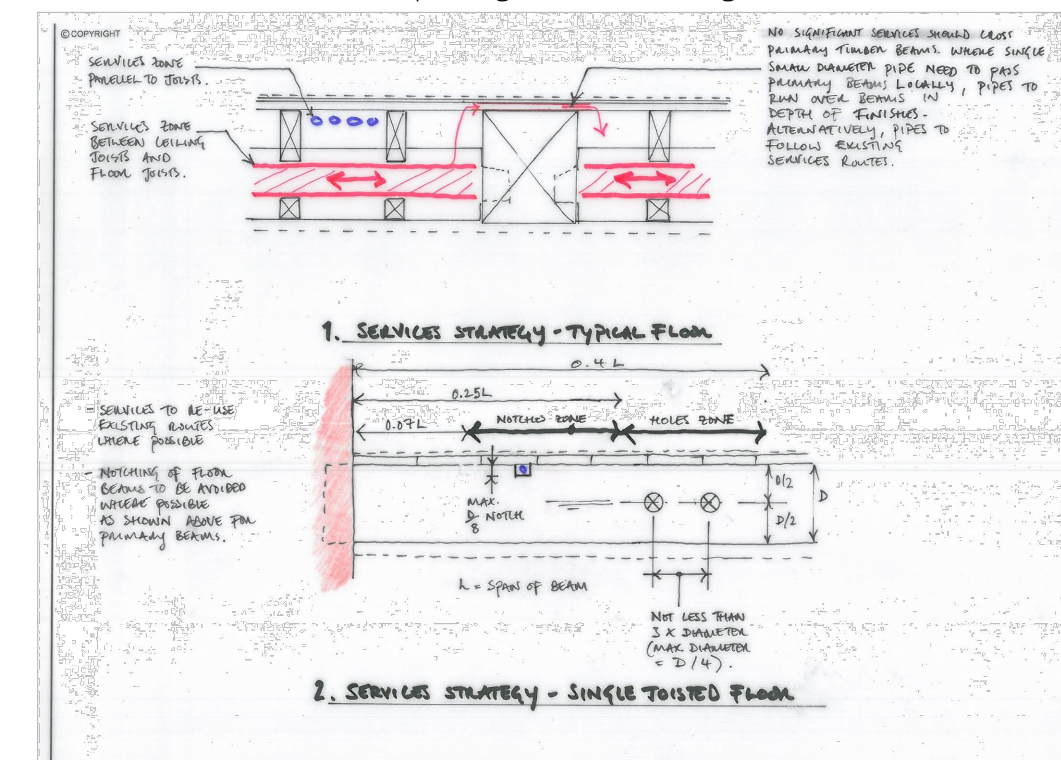 © COPYRIGHT
SERVICES ZONE
PARALLEL TO JOISTS.
SERVICES ZONE
BETWEEN CEILING
JOISTS AND
FLOOR JOISTS.
NO SIGNIFICANT SERVICES SHOULD CROSS
PRIMARY TIMBER BEAMS. WHERE SINGLE
SMALL DIAMETER PIPE NEED TO PASS
PRIMARY BEAMS LOCALLY, PIPES TO
RUN OVER BEAMS IN
DEPTH OF FINISHES.
ALTERNATIVELY, PIPES TO
FOLLOW EXISTING
SERVICES ROUTES.
1. SERVICES STRATEGY - TYPICAL FLOOR
0.4 L
0.25L
0.07L
NOTCHES ZONE
HOLES ZONE
- SERVICES TO RE-USE
EXISTING ROUTES
WHERE POSSIBLE
- NOTCHING OF FLOOR
BEAMS TO BE AVOIDED
WHERE POSSIBLE
AS SHOWN ABOVE FOR
PRIMARY BEAMS.
MAX.
D/8 NOTCH
D/2
D
D/2
L = SPAN OF BEAM
NOT LESS THAN
3 X DIAMETER
(MAX DIAMETER
= D/4).
2. SERVICES STRATEGY - SINGLE JOISTED FLOOR